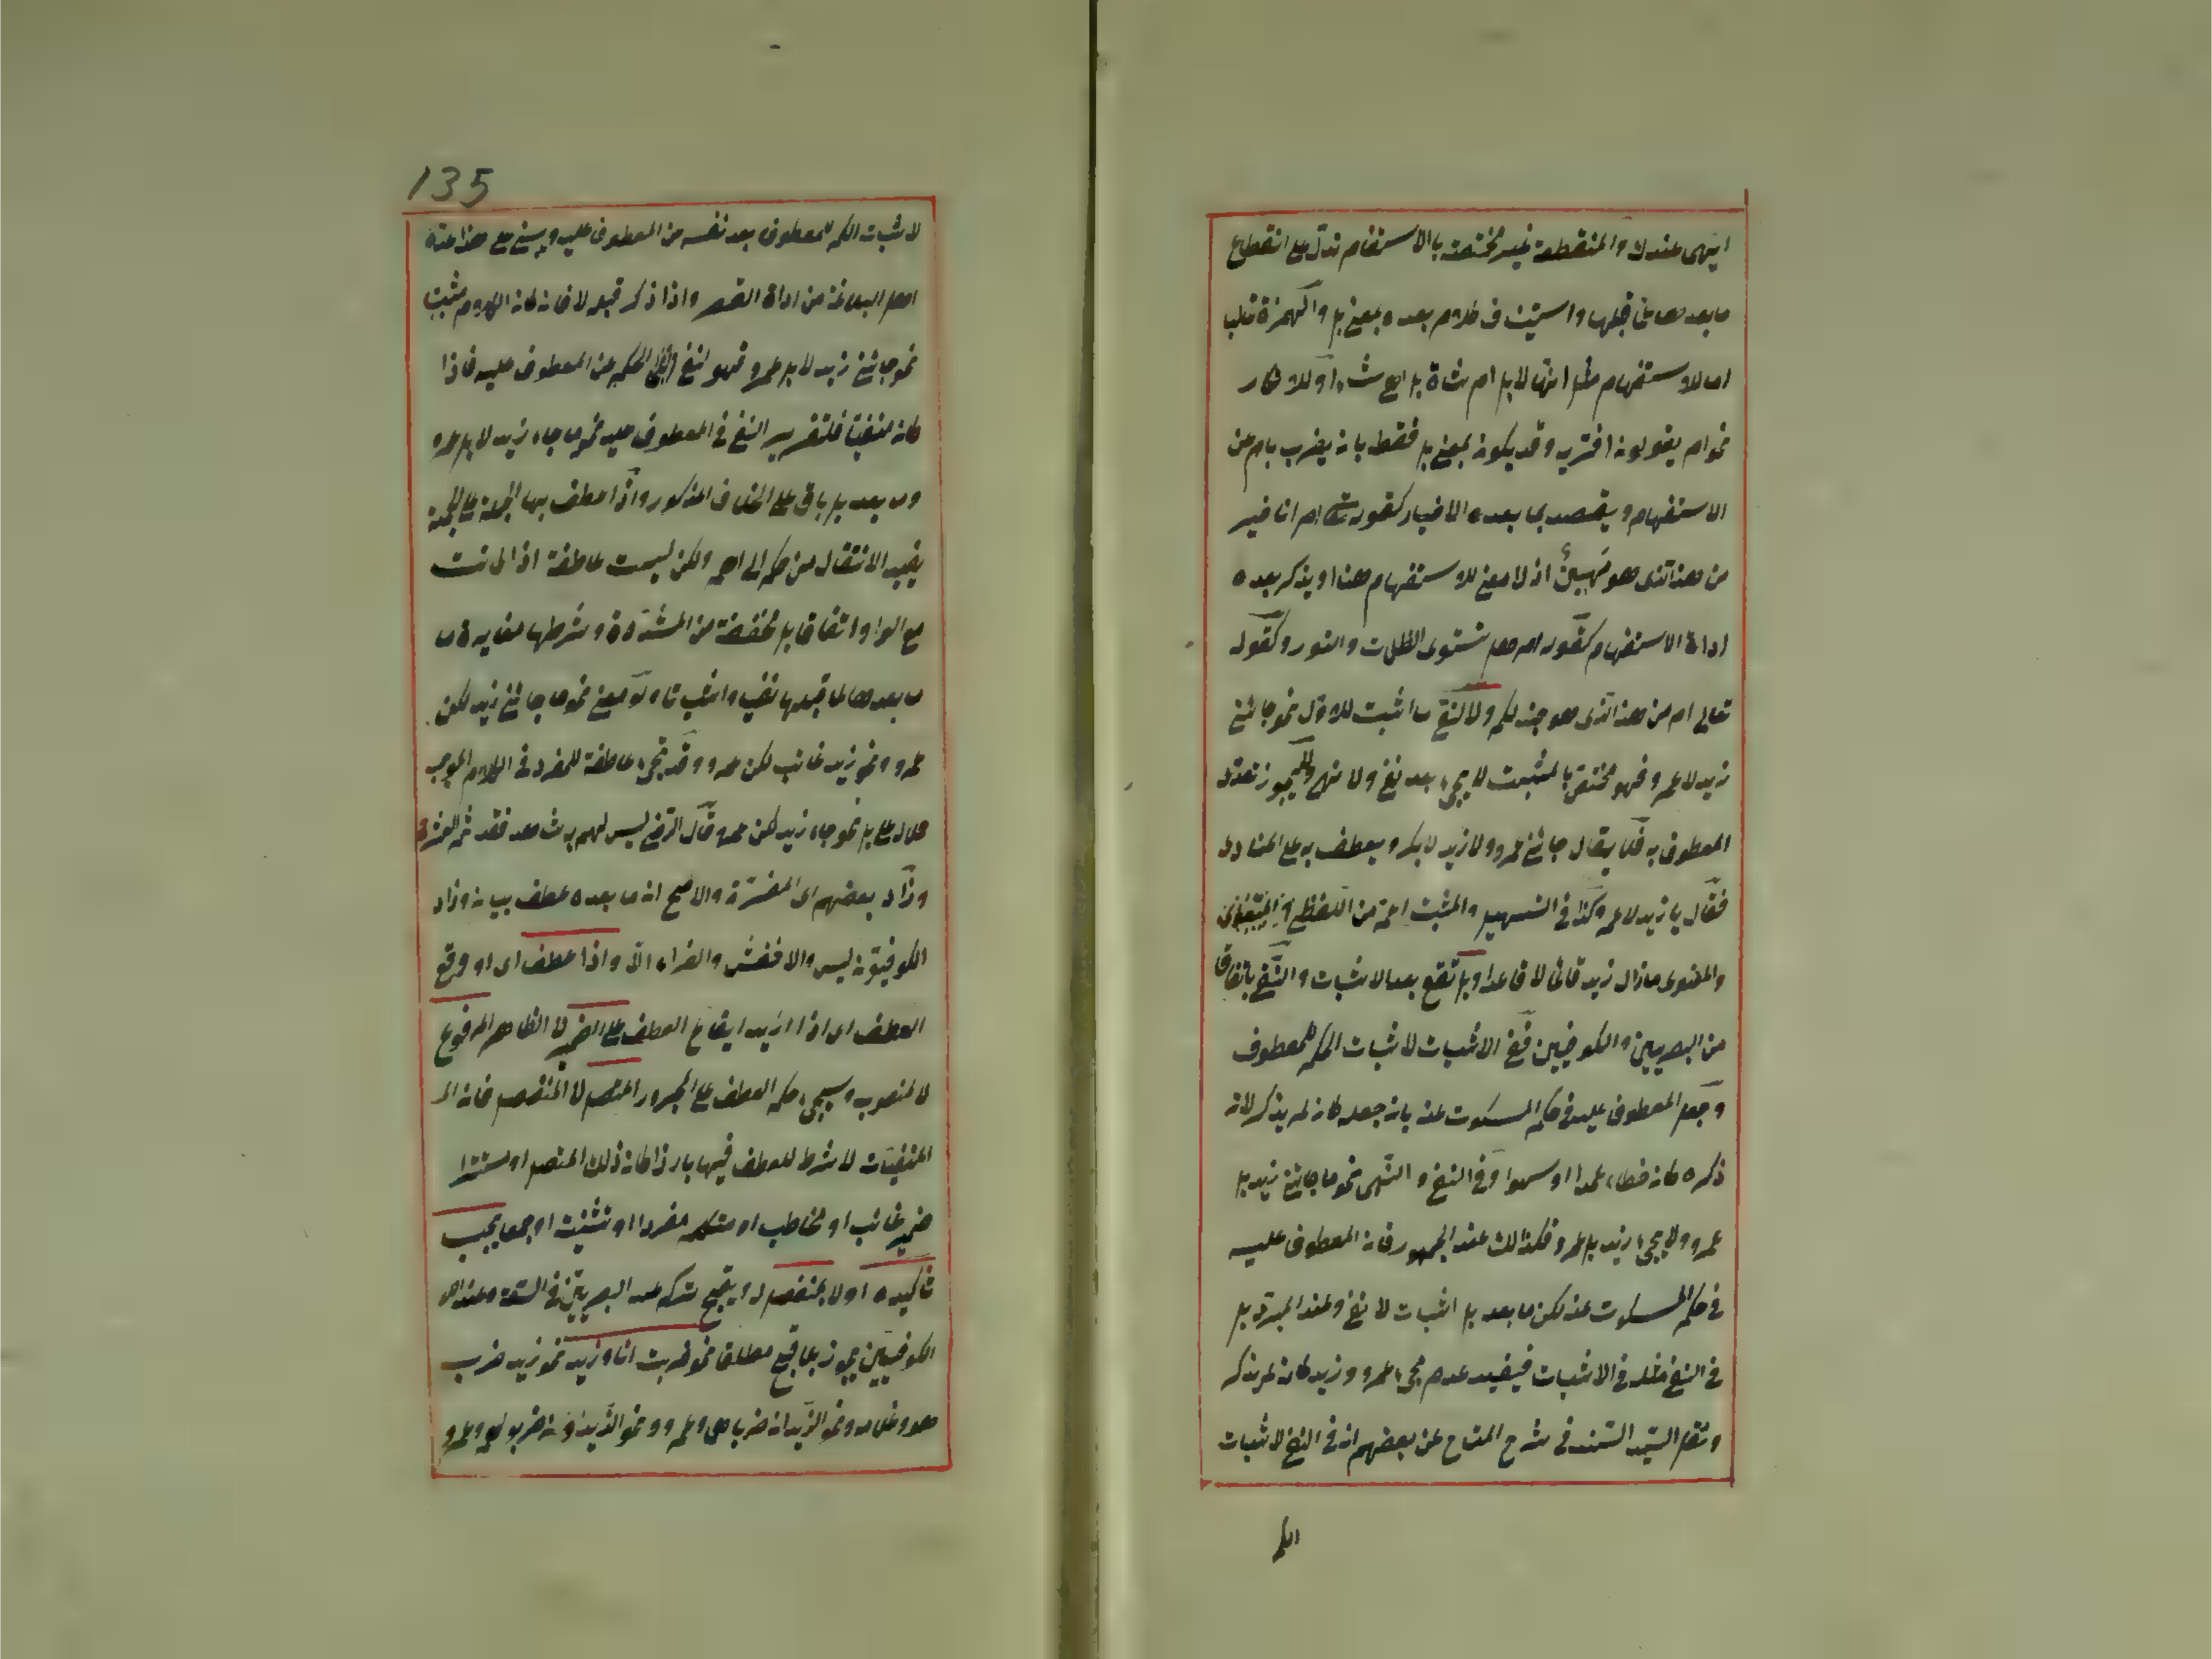 ايهما عندك والمنقطعة غير مختصة بالاستفهام تدل على انقطاع
ما بعدها عما قبلها واستيناف كلام بعده بمعنى بل والهمزة غالبا
اما للاستفهام مثل انها لابل ام شاة بل اهي شاء او للانكار
نحو ام يقولون افتريه وقد يكون بمعنى بل فقط بان يضرب بام عن
الاستفهام ويقصد بما بعده الاخبار كقوله تعالى ام انا خير
من هذا الذى هو مهين اذ لا معنى للاستفهام هنا او يذكر بعده
اداة الاستفهام كقوله ام هل تستوى الظلمات والنور وكقوله
تعالى ام من هذا الذى هو جند لكم ولا لنفي ما اثبت للاول نحو جائنى
زيد لا عمرو فهو مختص بالمثبت لا يجيء بعد نفي ولا نهي ولا يجوز تعدد
المعطوف به فلا يقال جائنى عمرو ولا زيد لا بكر ويعطف به على المنادى
فقال يا زيد لا عمرو وكذا في التسهيل والمثبت اعم من اللفظي
والمعنوى ما زال زيد قائما لا قاعدا وبل تقع بعد الاثبات والنفي باتفاق
من البصريين والكوفيين ففي الاثبات لاثبات الحكم للمعطوف
وجعل المعطوف عليه في حكم المسكوت عنه بان جعله كانه لم يذكر لان
ذكره كان خطاء عمدا او سهوا وفي النفي والنهى نحو ما جائنى زيد بل
عمرو ولا يجيء زيد بل عمرو فكذلك عند الجمهور فان المعطوف عليه
في حكم المسكوت عنه لكن ما بعد بل اثبات لا نفي وعند المبرد بل
في النفي مثله في الاثبات فيفيد عدم مجيء عمرو وزيد كان لم يذكر
ونقل السيد السند في شرح المفتاح عن بعضهم انه في النفي لاثبات
الحكم
135
لاثبات الحكم للمعطوف بعد نفيه من المعطوف عليه ويبنى على هذا عده
اهل البلاغة من اداة القصر واذا ذكر قبله لا فان كان الكلام مثبتا
نحو جائنى زيد لا بل عمرو فهو لنفي الحكم عن المعطوف عليه فاذا
كان منفيا فلتقرير النفي في المعطوف عليه نحو ما جاء زيد لا بل عمرو
وما بعد بل باق على الخلاف المذكور واذا عطف بها الجملة على الجملة
يفيد الانتقال من حكم الى اهم ولكن ليست عاطفة اذا كانت
مع الواو اتفاقا بل مخففة من المشددة وشرطها مغايرة ما
ما بعدها لما قبلها نفيا واثباتا ولو معنى نحو ما جائنى زيد لكن
عمرو ونحو زيد غائب لكن عمرو وقد تجيء عاطفة للمفرد في الكلام الموجب
حملا على بل نحو جاء زيد لكن عمرو قال الرضي ليس لهم به شاهد فقد تم العشرة
وزاد بعضهم اى المفسرة والاصح ان ما بعده عطف بيان وزاد
الكوفيون ليس والاخفش والفراء الا واذا عطف اى او وقع
العطف اى اذا اريد ايقاع العطف على الضمير لا الظاهر المرفوع
لا المنصوب وسيجيء حكم العطف على المجرور المتصل لا المنفصل فانه
لا شرط للعطف فيها بارزا كان ذلك المتصل او مستترا
ضمير غائب او مخاطب او متكلم مفردا او تثنية او جمعا يجب
تاكيده اولا بمنفصل اى يقبح تركه عند البصريين في السعة وعند
الكوفيين يجوز بلا قبح مطلقا نحو ضربت انا وزيد نحو زيد ضرب
هو وغلامه ونحو الزيدان ضربا هما وعمرو ونحو الزيدون ضربوا هم وعمرو